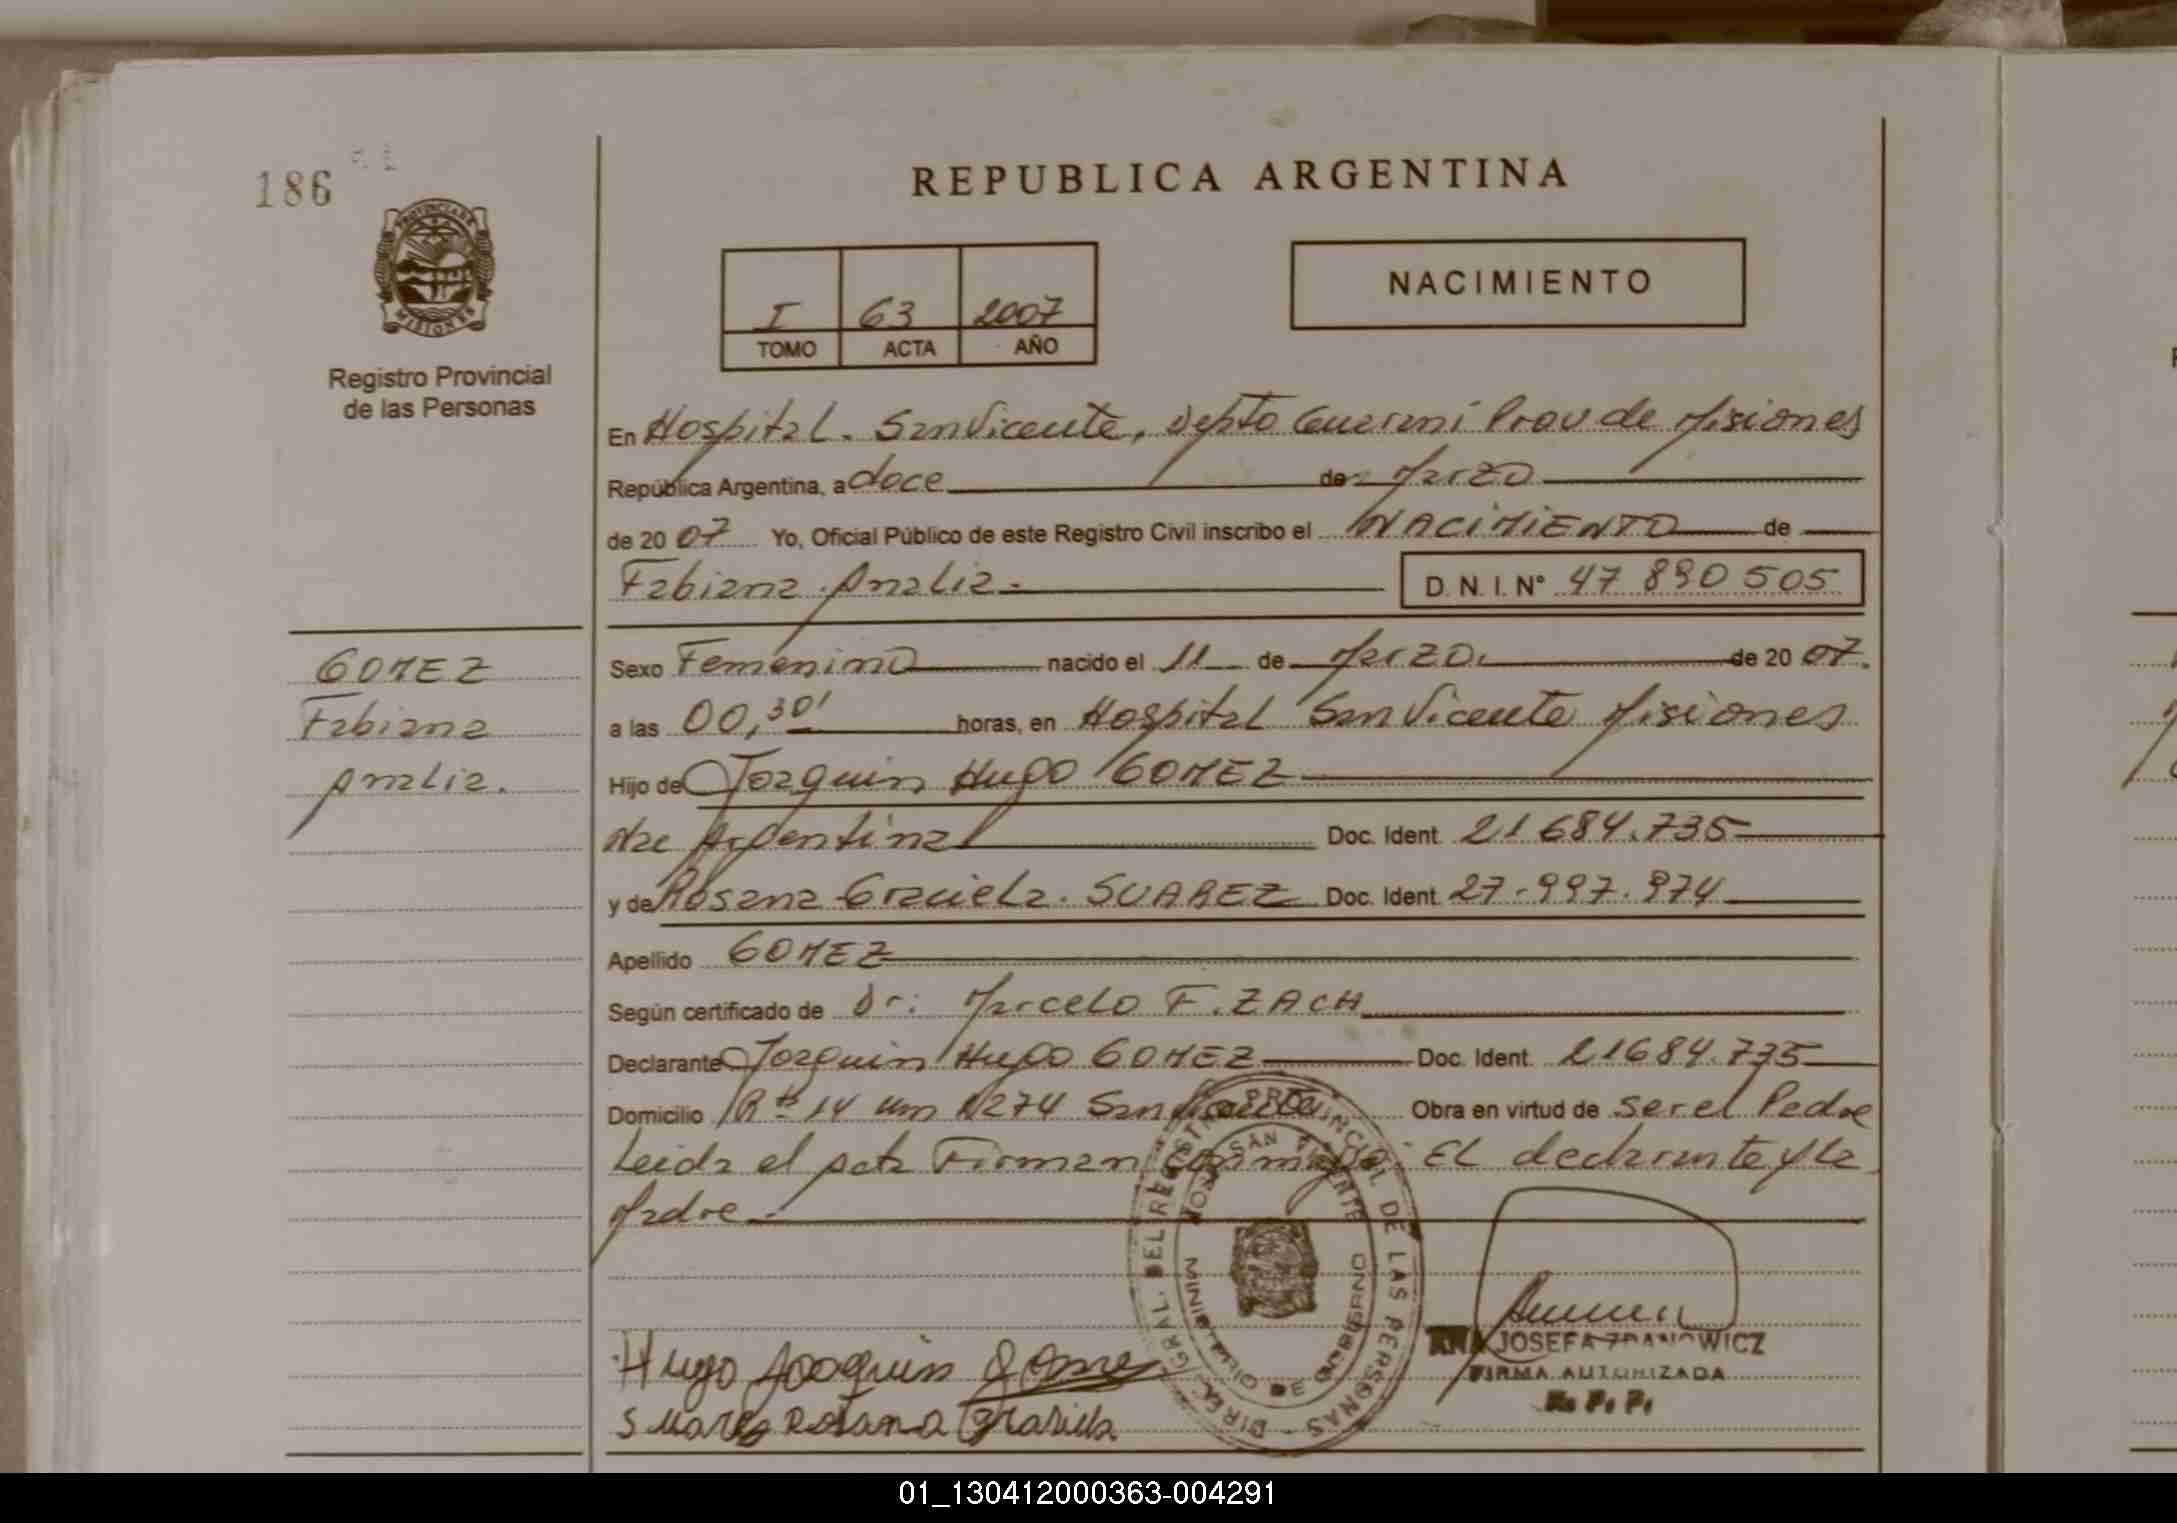 186
REPUBLICA ARGENTINA
PROVINCIA DE
MISIONES
Registro Provincial
de las Personas
I 63 2007
TOMO ACTA AÑO
NACIMIENTO
En Hospital. San Vicente, Depto Guarani Prov de Misiones
República Argentina, a doce de Marzo
de 20 07 Yo, Oficial Público de este Registro Civil inscribo el NACIMIENTO de
Fabiana Analia.
D. N. I. N° 47 890 505
GOMEZ
Fabiana
Analia.
Sexo Femenino nacido el 11 de Marzo. de 20 07.
a las 00,30' horas, en Hospital San Vicente Misiones
Hijo de Joaquin Hugo GOMEZ
Nac Argentina Doc. Ident. 21.684.735
y de Rosana Graciela. SUAREZ Doc. Ident. 27.997.974
Apellido GOMEZ
Según certificado de Dr: Marcelo F. ZACH
Declarante Joaquin Hugo GOMEZ Doc. Ident. 21684.735
Domicilio Rta 14 km 1274 San Vicente. Obra en virtud de ser el Padre
Leida el acta Firman conmigo: El declarante y la
Madre
DIREC. GRAL. DEL REGISTRO PROVINCIAL DE LAS PERSONAS
HOSP. SAN VICENTE
MINISTERIO DE GOBIERNO
Hugo Joaquin Gomez
Suarez Rosana Graciela.
ANA JOSEFA ZDANOWICZ
FIRMA AUTORIZADA
R. P. P.
01_130412000363-004291